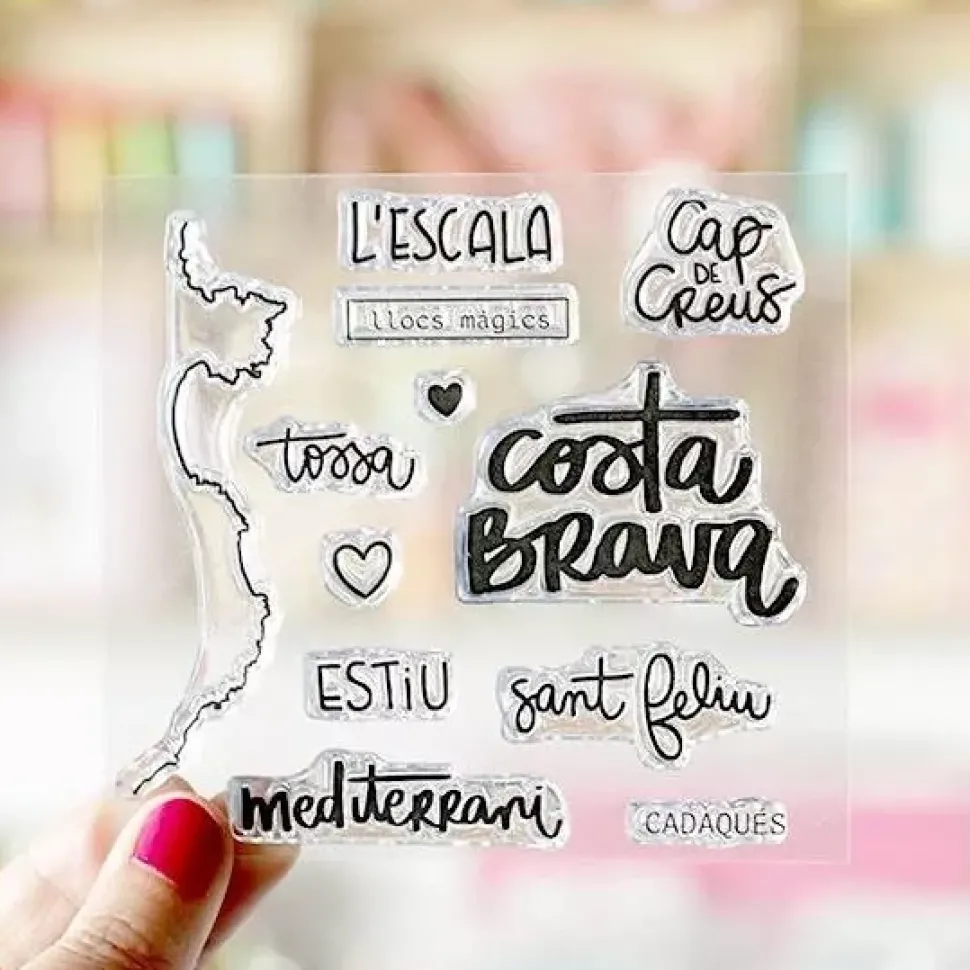 L'ESCALA
Cap
DE
Creus
llocs màgics
tossa
costa
Brava
ESTiU
sant feliu
mediterrani
CADAQUÉS